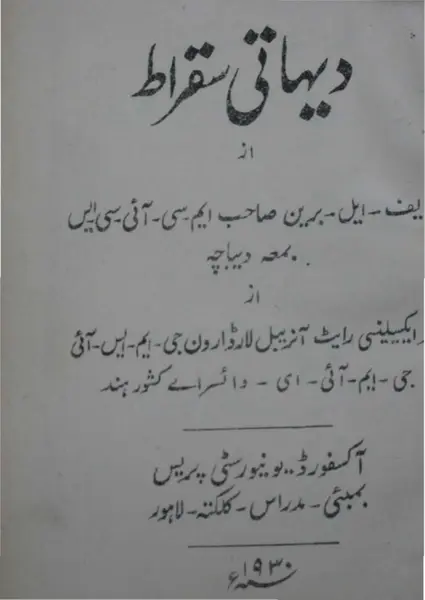 دیہاتی سقراط
از
یف-ایل-برین صاحب ایم سی-آئی-سی ایس
بمعہ دیباچہ
از
ایکسیلنسی رایٹ آنریبل لارڈ ارون جی-ایم-ایس-آئی
جی-ایم-آئی-ای-وائسراے کشور ہند
آکسفورڈ یونیورسٹی پریس
بمبئی-مدراس-کلکتہ-لاہور
۱۹۳۰ء